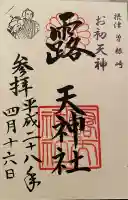 摂津 曽根崎
お初天神
露天神社
参拝
平成二十八年
四月十六日